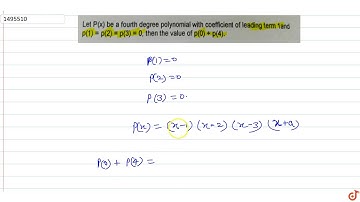 1495510
Let P(x) be a fourth degree polynomial with coefficient of leading term 1and
p(1) = p(2) = p(3) = 0, then the value of p(0) + p(4).
P(1)=0
P(2)=0
P(3)=0.
P(x) = (x-1) (x-2) (x-3) (x+a)
P(0) + P(4) =